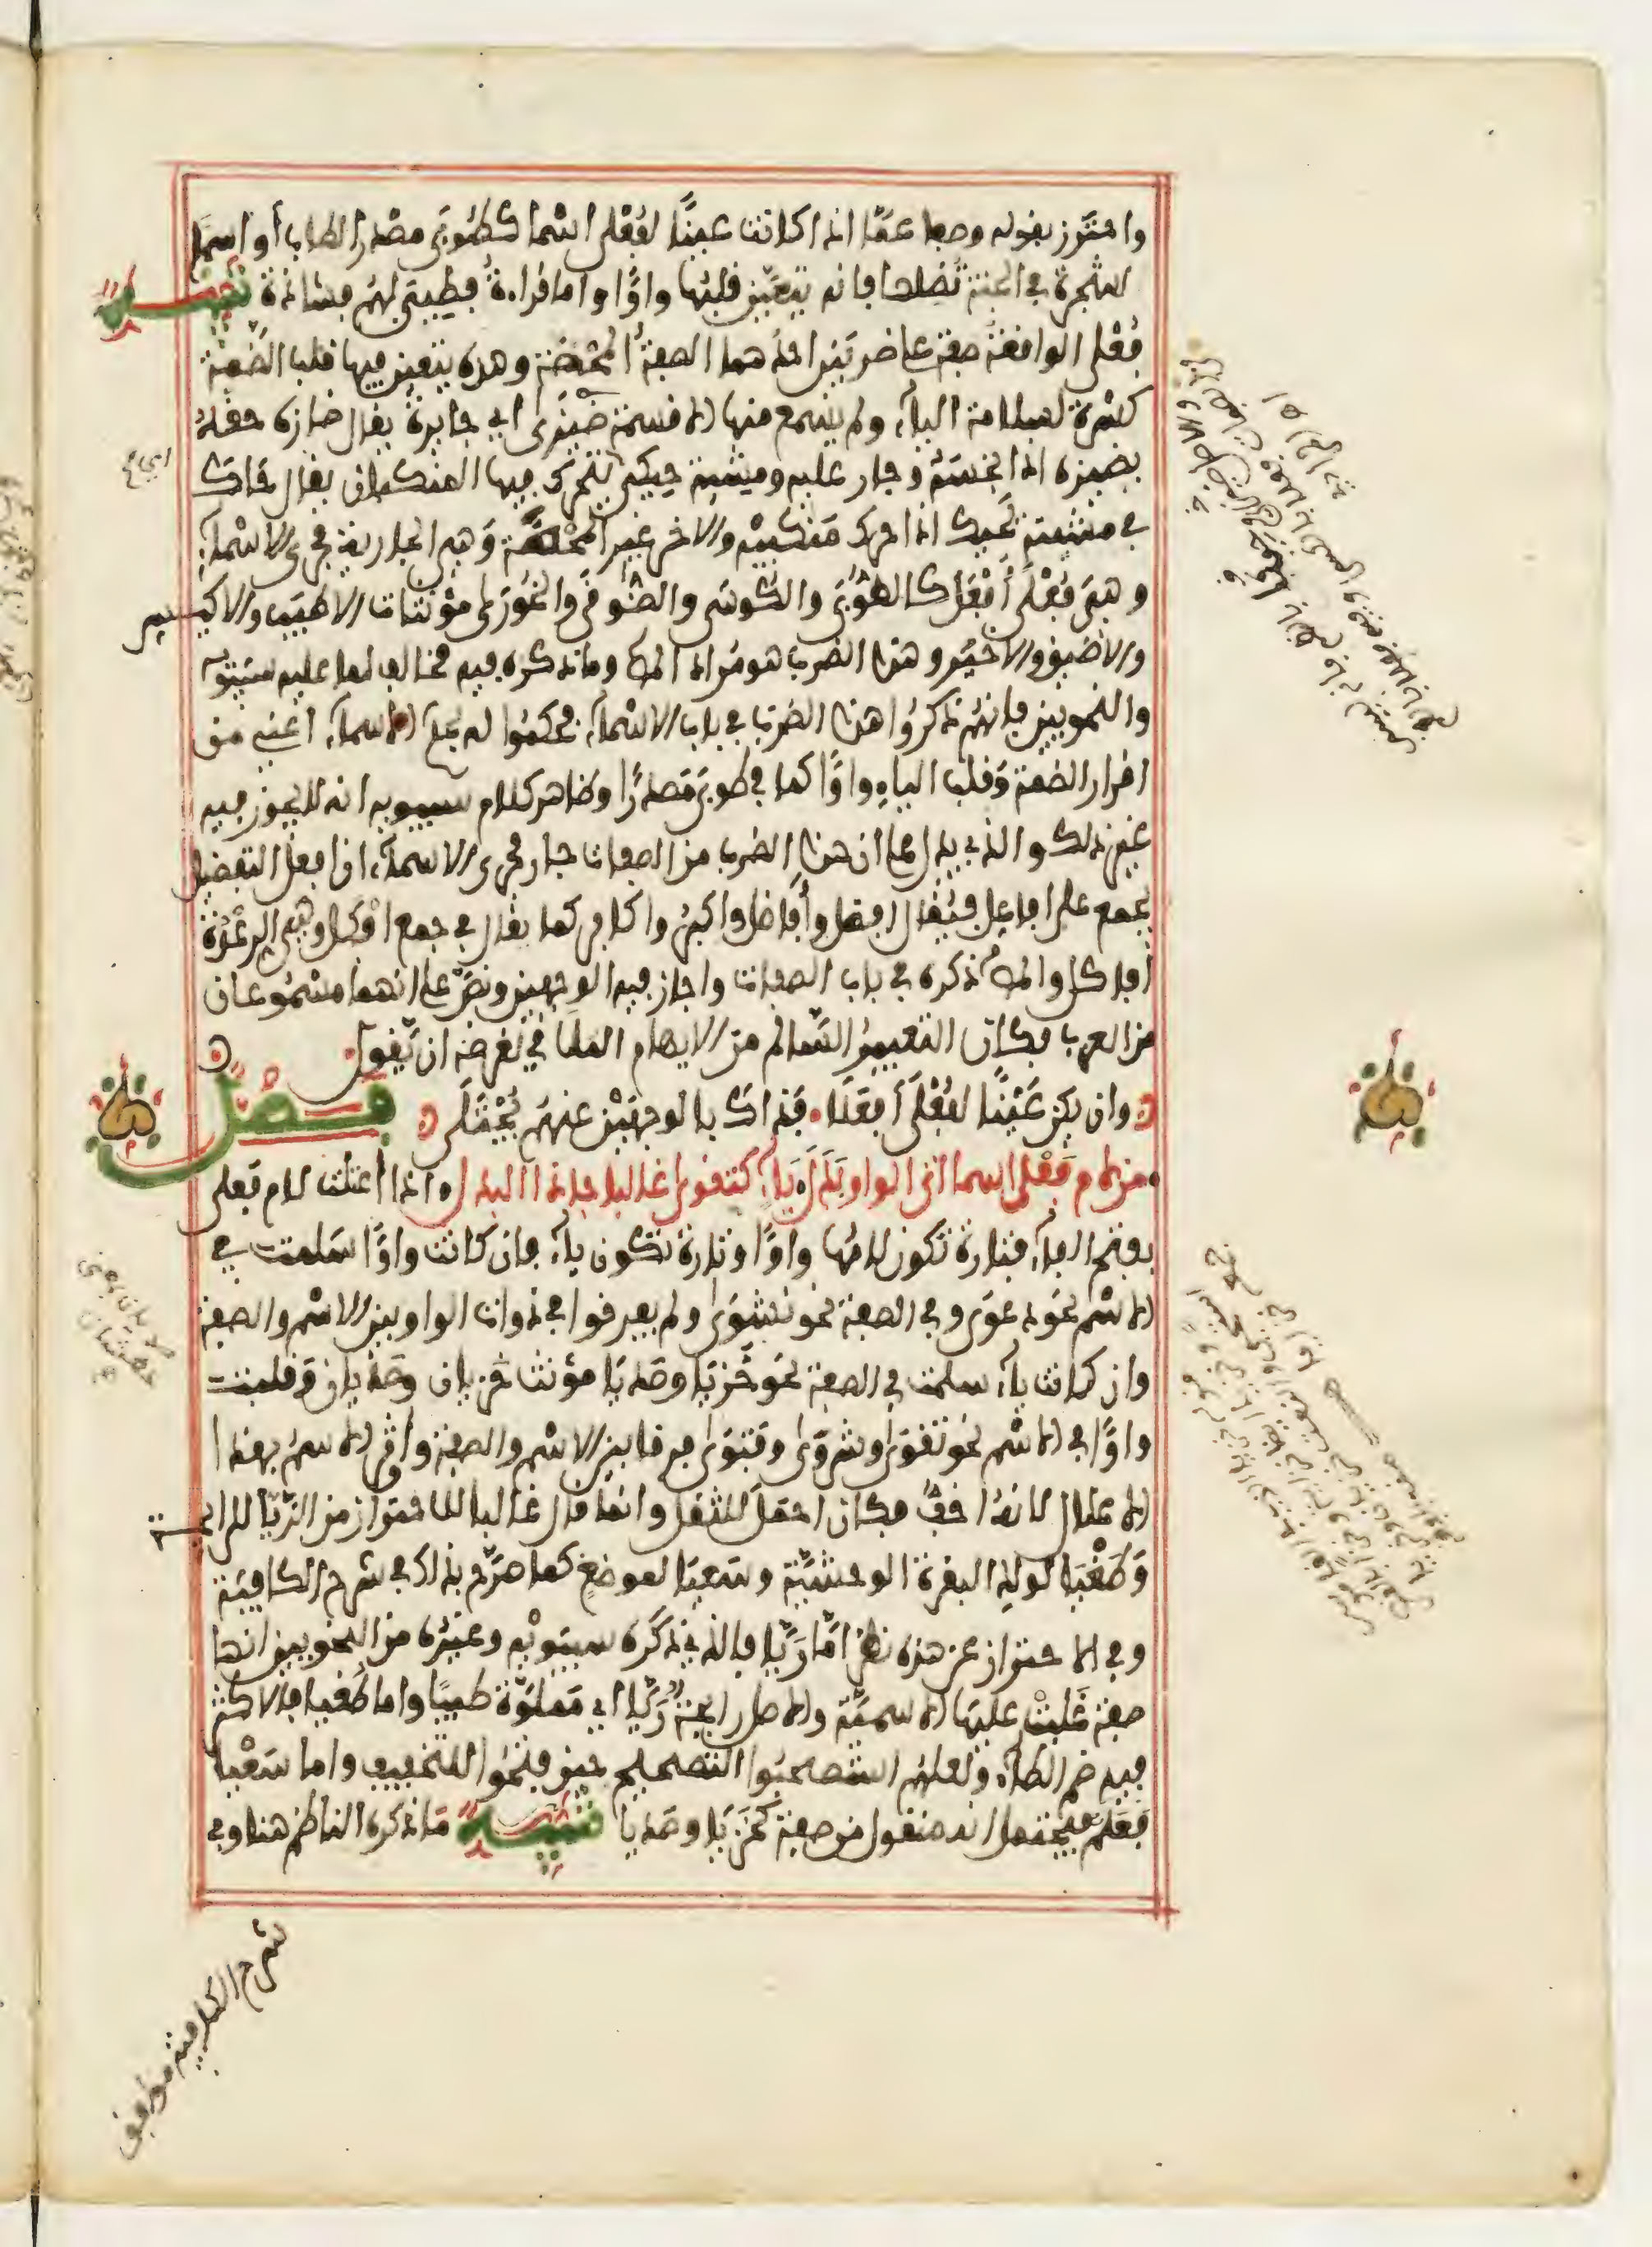 واحترز بقوله وصفا عما اذا كانت عينا لفعلى اسما كطوبى مصدرا لطاب أو اسما
لشجرة في الجنة تظلها فإنه يتعين قلبها واوا واما قراءة طيبى لهم فشاذة تنبيه
فعلى الواقعة صفة على ضربين احدهما الصفة المحضة وهذه يتعين فيها قلب الضمة
كسرة لسلامة الياء ولم يسمع منها الا قسمة ضيزى اي جايرة يقال ضازه حقه
يضيزه اذا بخسه وجار عليه ومشية حيكى يتحرك فيها المنكبان يقال حاك
في مشيته يحيك اذا حرك منكبيه والاخر غير المحضة وهي الجارية مجرى الاسماء
وهي فعلى أفعل كالطوبى والكوسى والضوقى والخورى مؤنثات الاطيب والاكيس
والاضيق والاخير وهذا الضرب هو مراد المص وما ذكره فيه مخالف لما عليه سيبويه
والنحويين فإنهم ذكروا هذا الضرب في باب الاسماء فحكموا له بحكم الاسماء اعني من
اقرار الضمة وقلب الياء واوا كما في طوبى مصدرا وظاهر كلام سيبويه انه لا يجوز فيه
غير ذلك والذي يدل على ان هذا الضرب من الصفات جار مجرى الاسماء ان افعل التفضيل
يجمع على افاعل فيقال افضل وأفاضل واكبر واكابر كما يقال في جمع افكل وهي الرعدة
أفاكل والمص ذكره في باب الصفات واجاز فيه الوجهين ونص على انهما مسموعان
من العرب فكان التعبير السالم من الايهام الملاقي لغرضه ان يقول
وان يكن عينا لفعلى أفعلا فذاك بالوجهين عنهم يجتلى فصل
من لام فعلى اسما اتى الواو بدل ياء كتقوى غالبا جا ذا البدل اذا اعتلت لام فعلى
بفتح الفاء فتارة تكون لامها واوا وتارة تكون ياء فإن كانت واوا سلمت في
الاسم نحو دعوى وفي الصفة نحو نشوى ولم يفرقوا في ذوات الواو بين الاسم والصفة
وان كانت ياء سلمت في الصفة نحو خزيا وصديا مؤنث خزيان وصديان وقلبت
واوا في الاسم نحو تقوى وشروى وفتوى فرقا بين الاسم والصفة واوثر الاسم بهذا
الاعلال لانه اخف فكان احمل للثقل وانما قال غالبا للاحتراز من الريا للرايحة
وطغيا لولد البقرة الوحشية وسعيا لموضع كما صرح بذلك في شرح الكافية
وفي الاحتراز عن هذه نظر اما ريا فالذي ذكره سيبويه وغيره من النحويين انها
صفة غلبت عليها الاسمية والاصل رايحة ريا اي مملوة طيبا واما طغيا فالاكثر
فيه ضم الطاء ولعلهم استصحبوا التصحيح حين فتحوا للتخفيف واما سعيا
فعلم فيحتمل انه منقول من صفة كخزيا وصديا تنبيه ما ذكره الناظم هنا وفي
شرح الكافية موافق